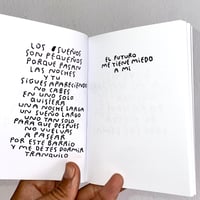 LOS SUEÑOS
SON PEQUEÑOS
PORQUE PASAN
LAS NOCHES
Y TU
SIGUES APARECIENDO
NO CABES
EN UNO SOLO
QUISIERA
UNA NOCHE LARGA
UN SUEÑO LARGO
UNO TAN SOLO
PARA QUE DESPUÉS
NO VUELVAS
A PASEAR
POR ESTE BARRIO
Y ME DEJES DORMIR
TRANQUILO
EL FUTURO
ME TIENE MIEDO
A MI